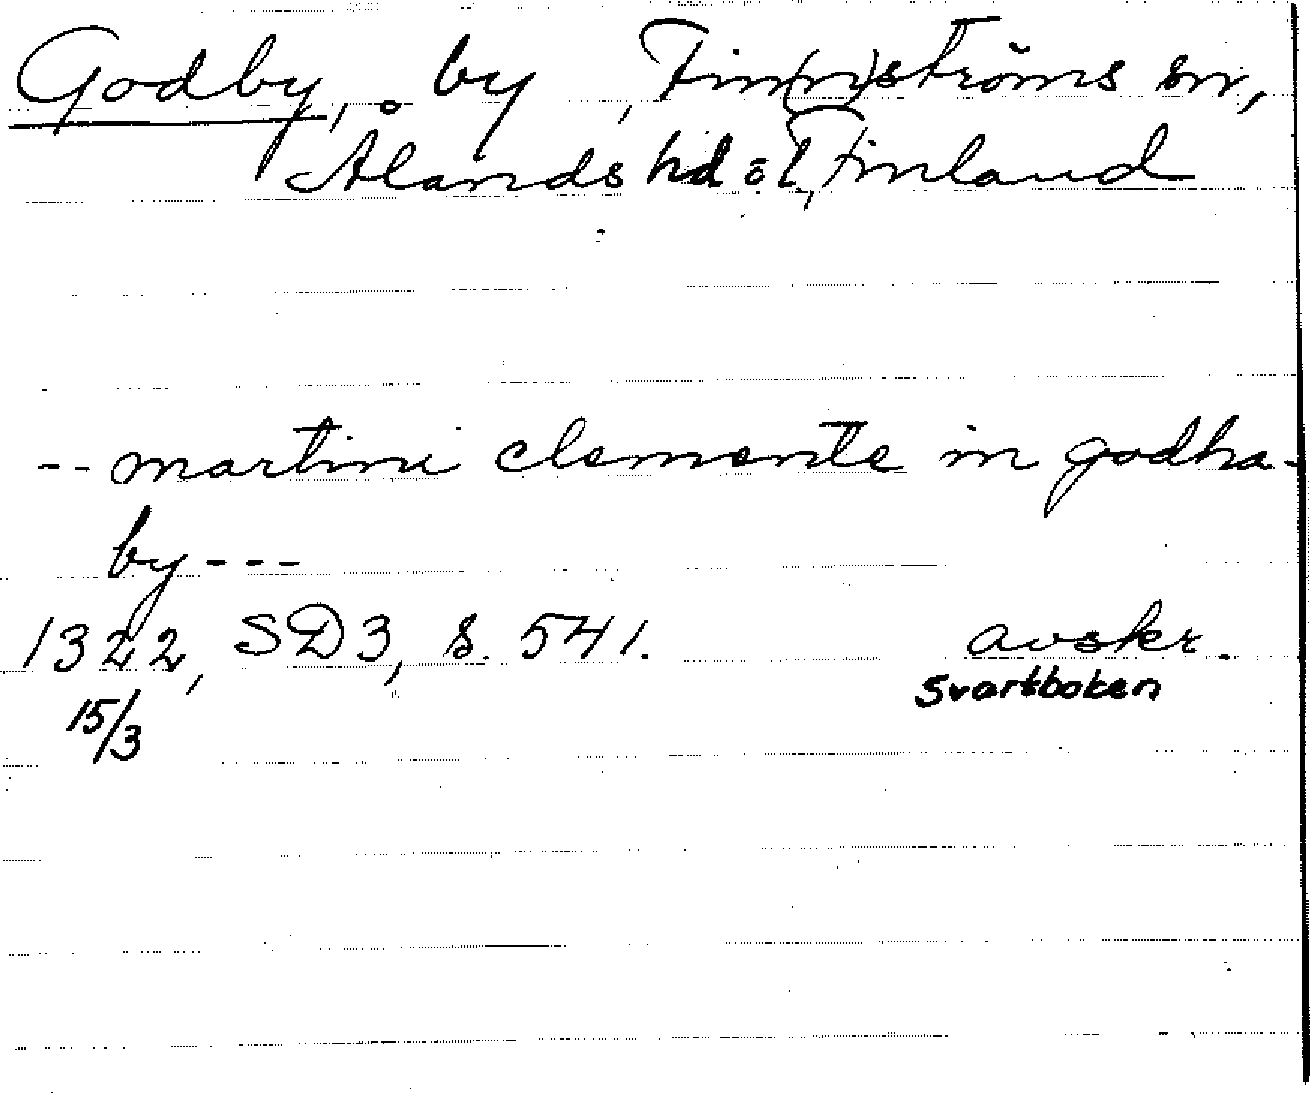 Godby, by, Fin(n)ströms sn,
Ålands hd öl, Finland
-- martini clemente in godha-
by ---
1322, SD3, s. 541. avskr.
15/3 Svartboken